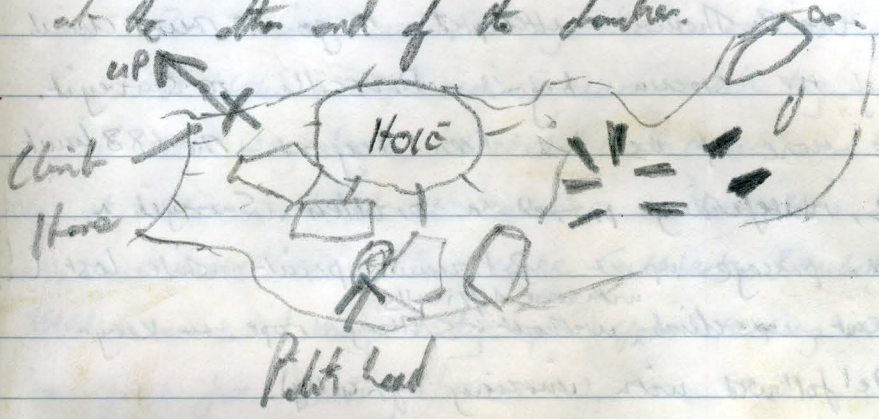 at the other end of the chamber.
UP
Hole
Climb
Here
Pitch head